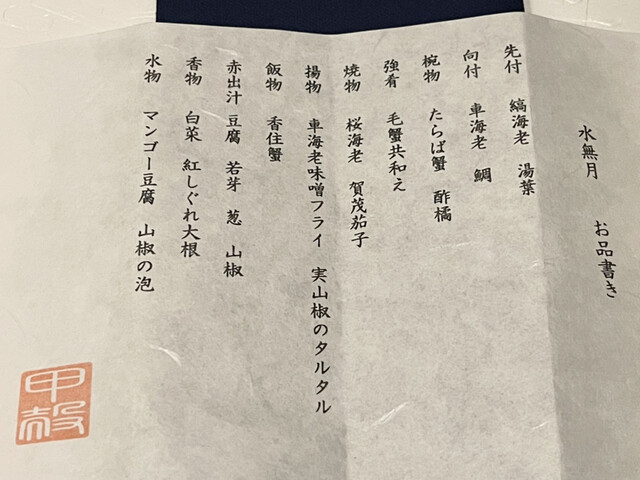 水無月 お品書き
先付 縞海老 湯葉
向付 車海老 鯛
椀物 たらば蟹 酢橘
強肴 毛蟹共和え
焼物 桜海老 賀茂茄子
揚物 車海老味噌フライ 実山椒のタルタル
飯物 香住蟹
赤出汁 豆腐 若芽 葱 山椒
香物 白菜 紅しぐれ大根
水物 マンゴー豆腐 山椒の泡
甲殻